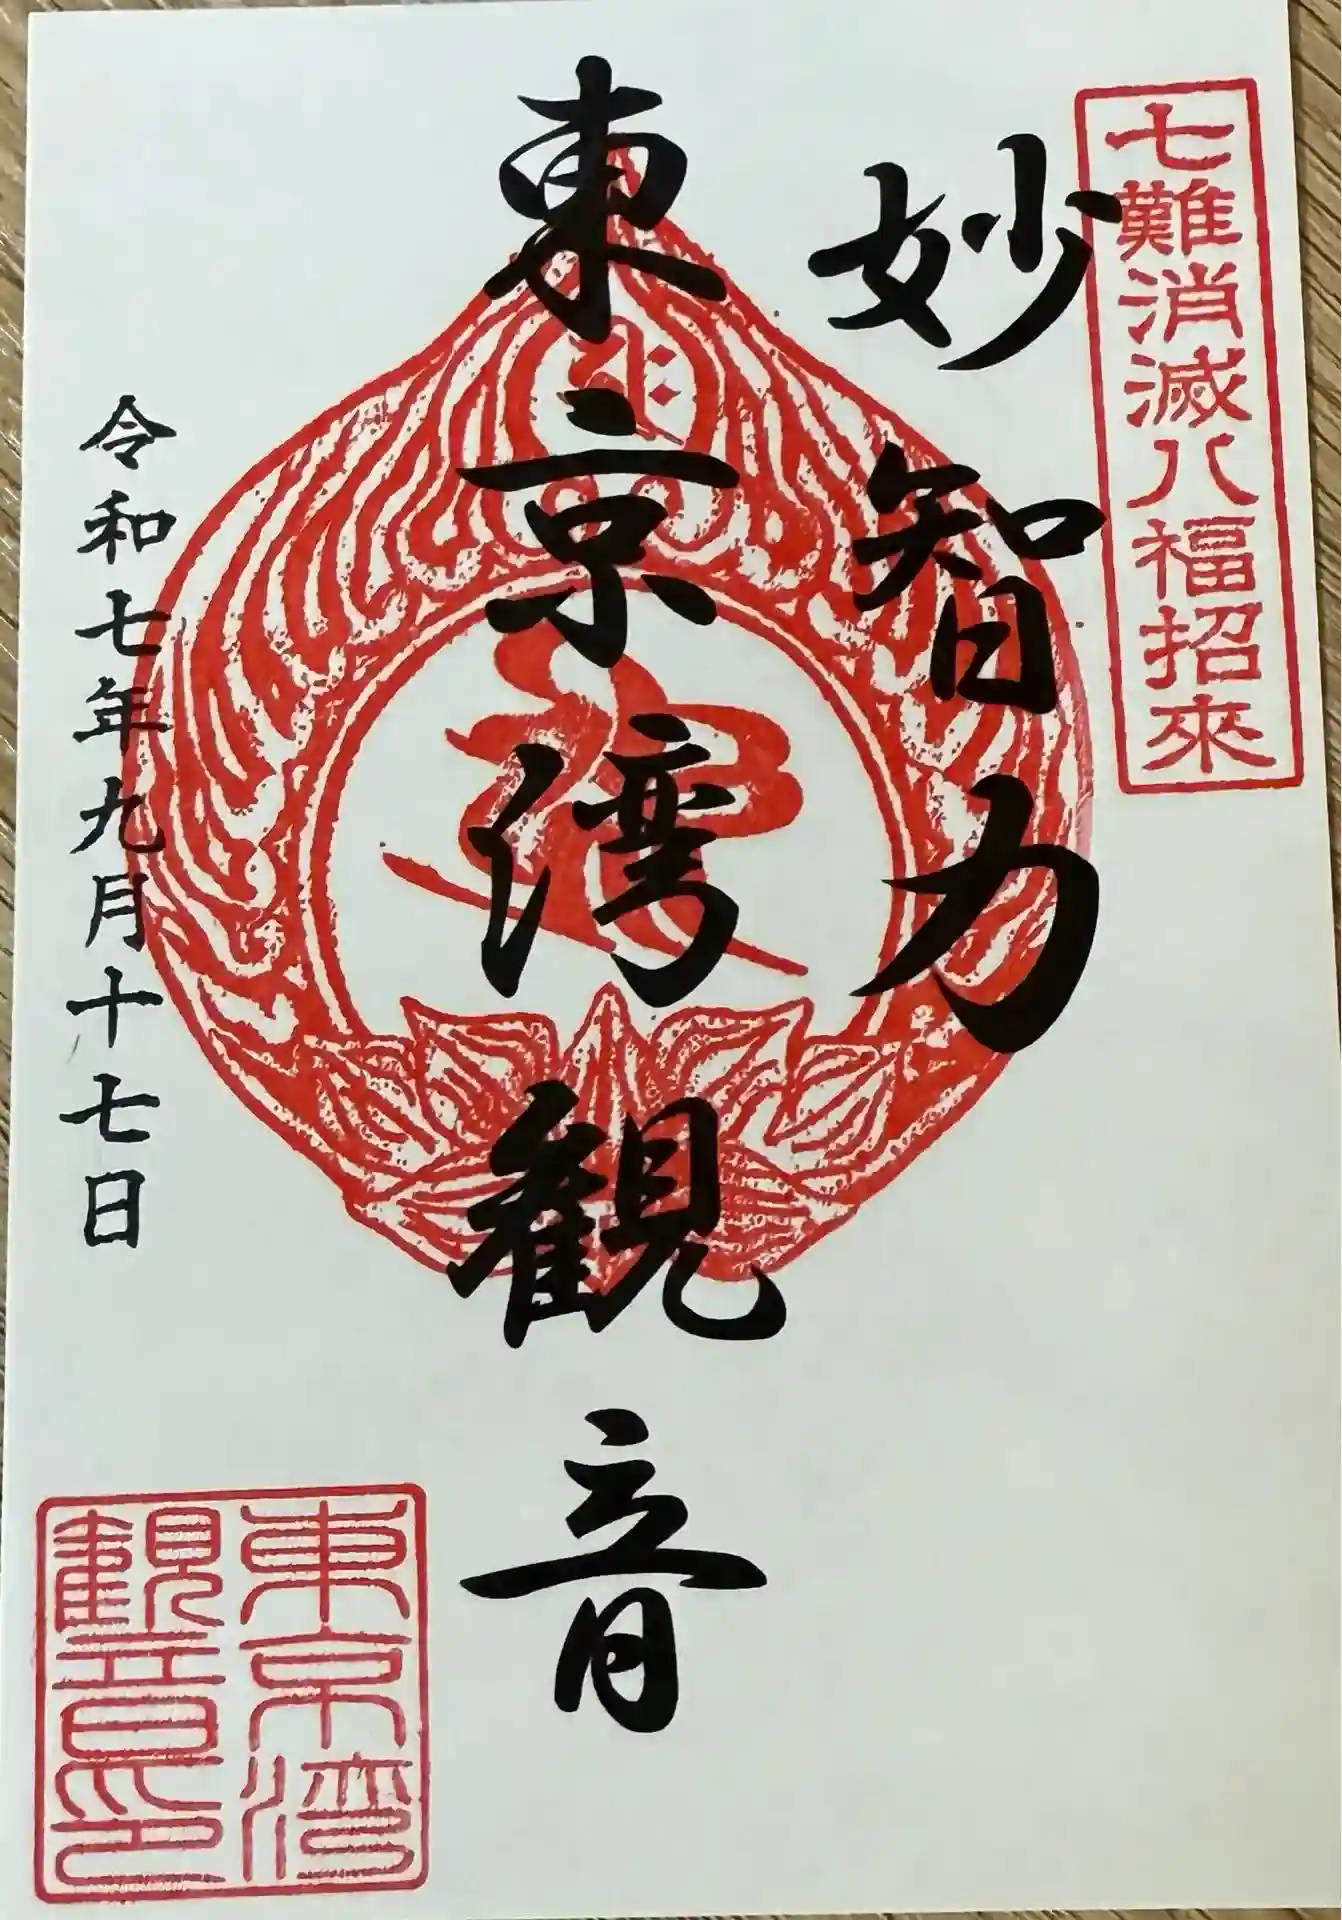 七難消滅八福招來
妙智力
東京湾観音
令和七年九月十七日
東京湾
観音印